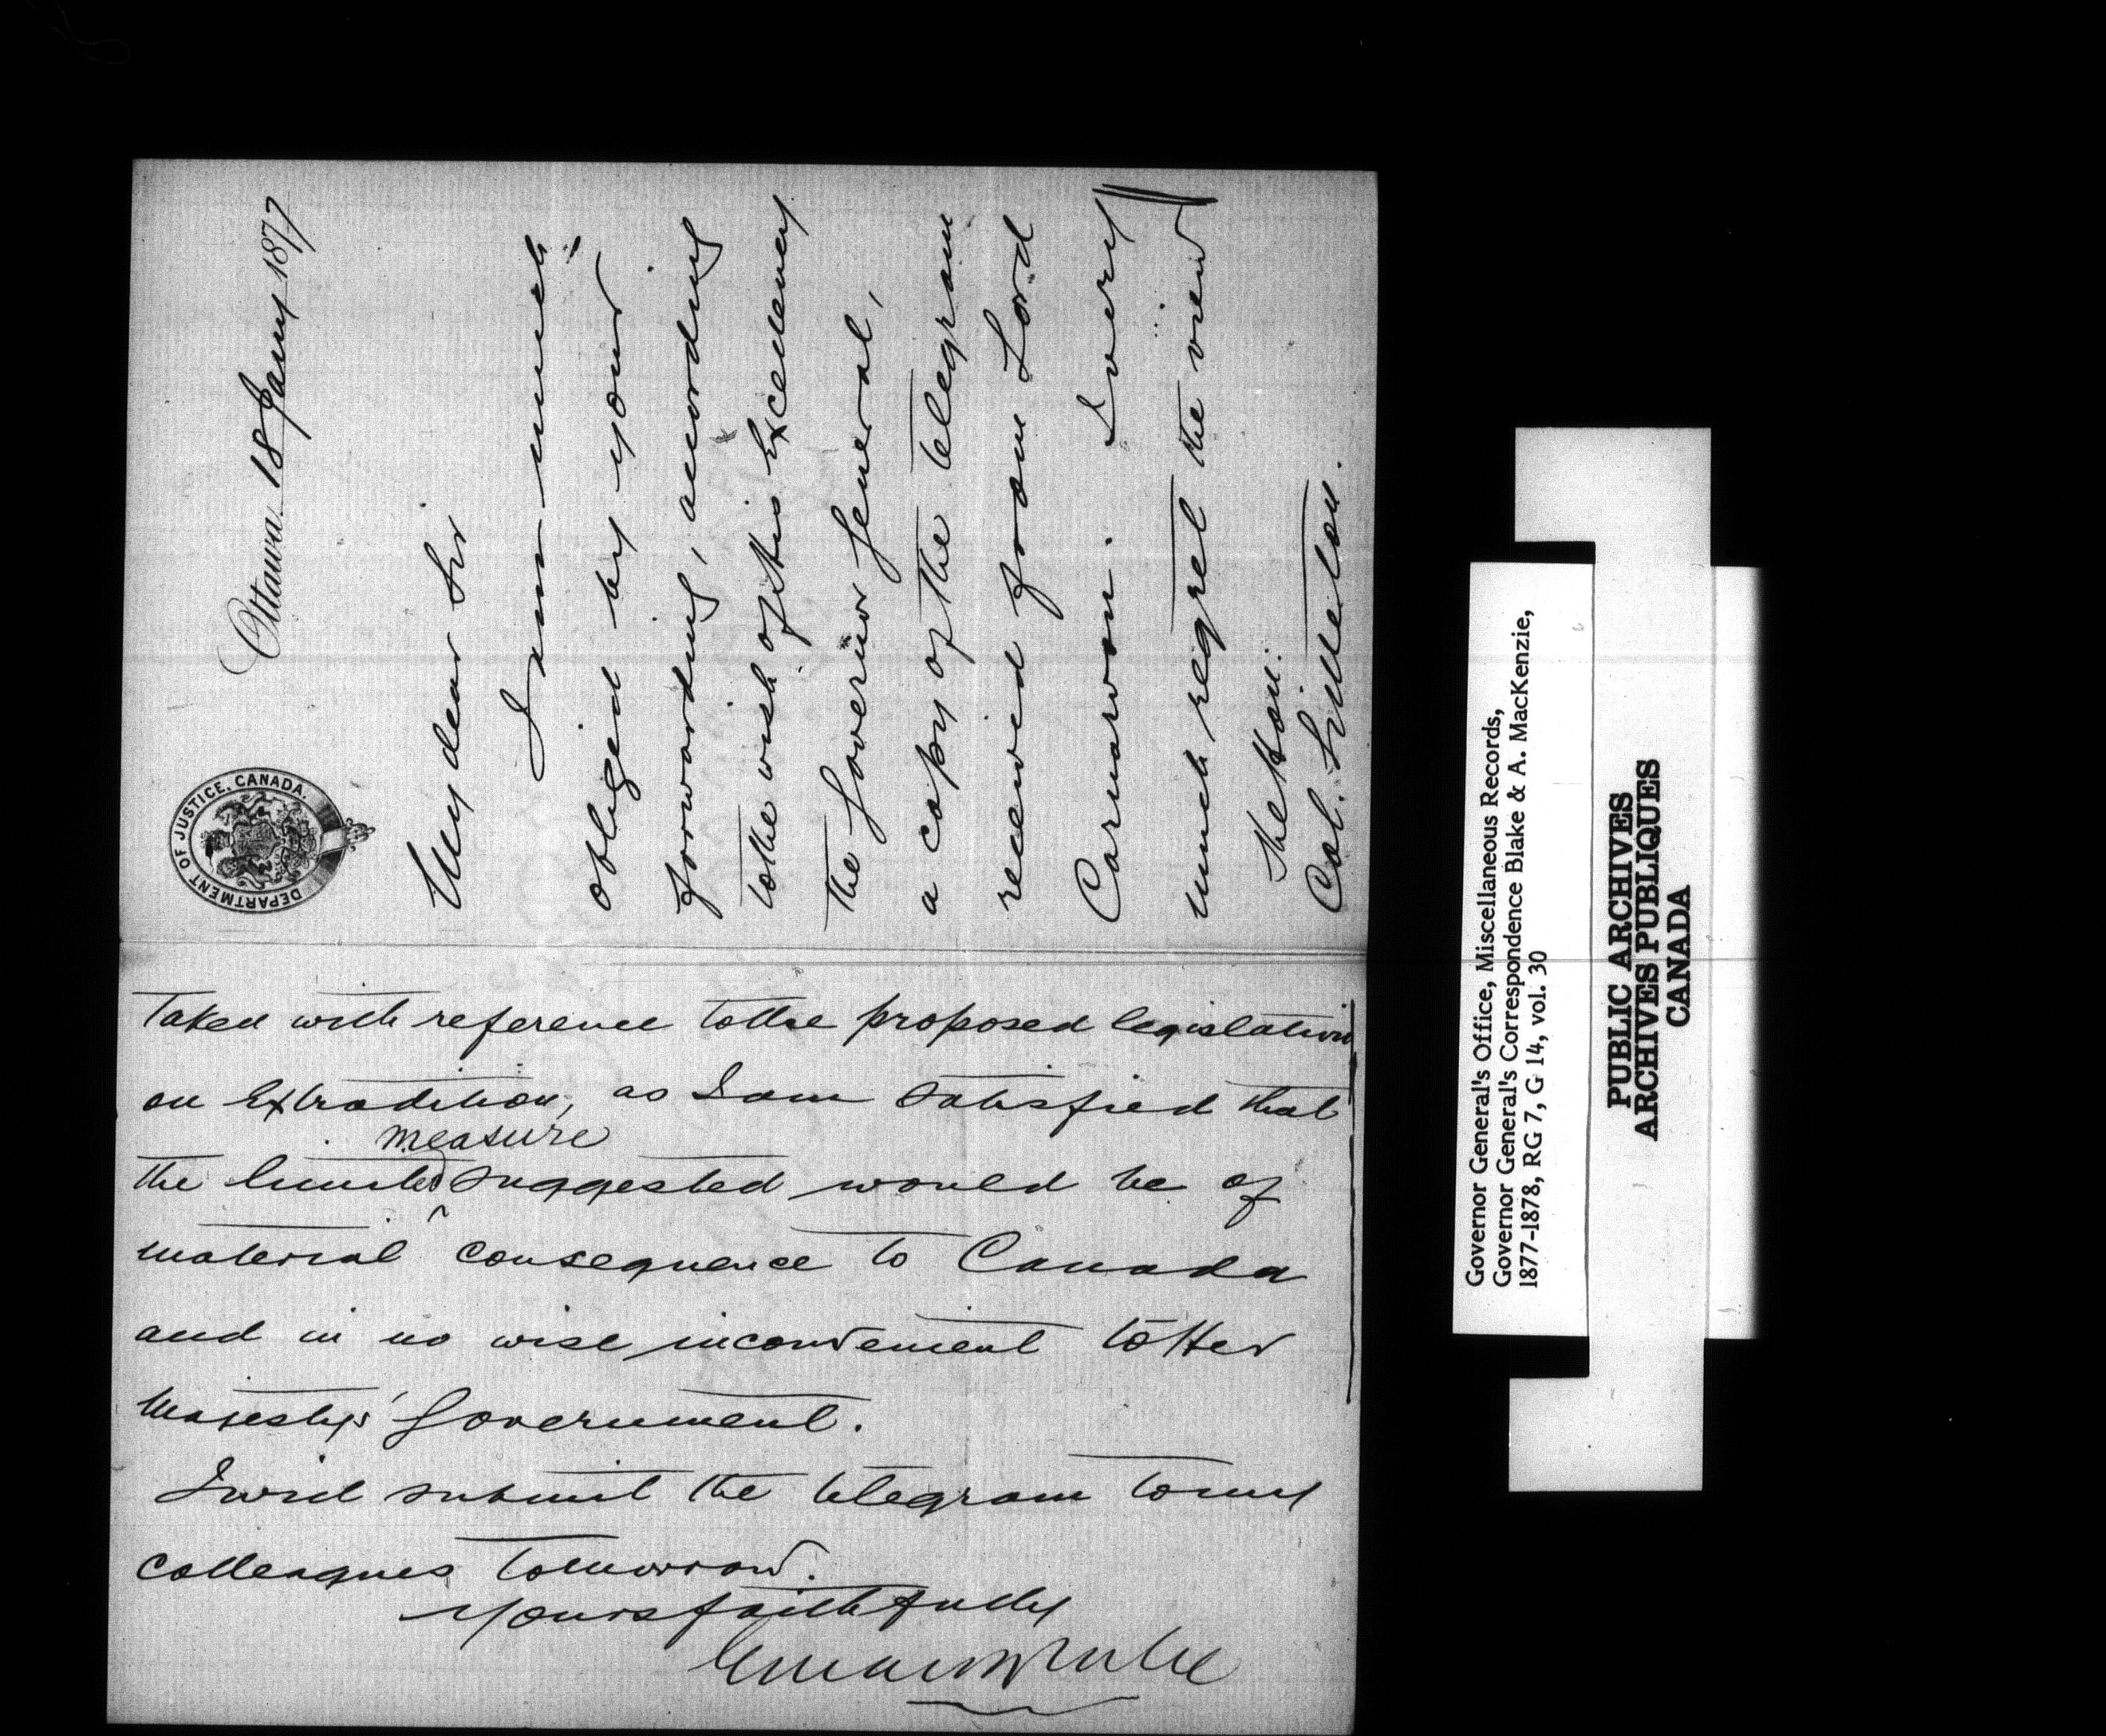 DEPARTMENT OF JUSTICE, CANADA.
Ottawa 18 Jany 1877
My dear Sir
I am much
obliged by your
forwarding, according
to the wish of His Excellency
the Governor General,
a copy of the telegram
received from Lord
Carnarvon. I very
much regret the view
The Hon:
Col. Littleton.
taken with reference to the proposed legislation
on Extradition, as I am satisfied that
measure
the limited suggested would be of
material consequence to Canada
and in no wise inconvenient to Her
Majesty's Government.
I will submit the telegram to my
colleagues tomorrow.
Yours faithfully
Edward Blake
Governor General's Office, Miscellaneous Records,
Governor General's Correspondence Blake & A. MacKenzie,
1877-1878, RG 7, G 14, vol. 30
PUBLIC ARCHIVES
ARCHIVES PUBLIQUES
CANADA